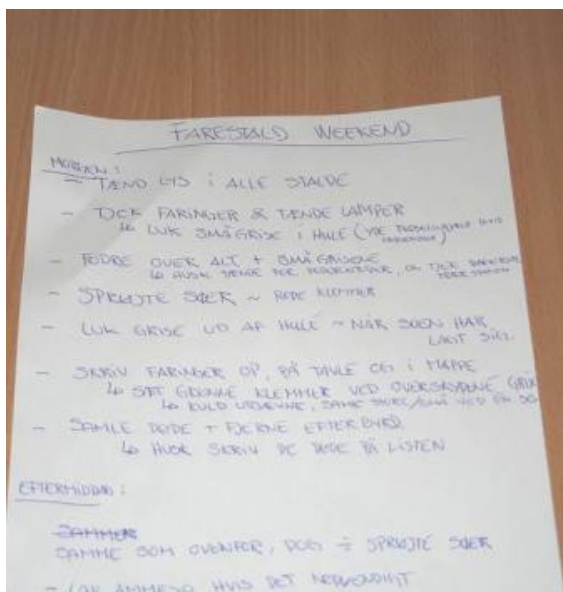 FARESTALD WEEKEND
MORGEN:
- TÆND LYS i ALLE STALDE
- TJCK FARINGER & TÆNDE LAMPER
↳ LUK SMÅGRISE i HULE (
HVIS
- FODRE OVER ALT + SMÅGRISENE
↳ HUSK FOR OG TJCK
- SPRØJTE SØER ~ RØDE KLEMMER
- LUK GRISE UD AF HULE ~ NÅR SOEN HAR
LAGT SIG
- SKRIV FARINGER OP, PÅ TAVLE OG i MAPPE
↳ SÆT GRØNNE KLEMMER VED OVERSKYDENE GRISE
↳ KULD UDJÆVNE, SAMLE STORE/SMÅ VED EN SO
- SAMLE DØDE + FJERNE EFTERBYRD
↳ HUSK SKRIV DE DØDE PÅ LISTEN
EFTERMIDDAG:
SAMMEN
SAMME SOM OVENFOR, DOG ÷ SPRØJTE SØER
- LAV AMMESO HVIS DET NØDVENDIGT